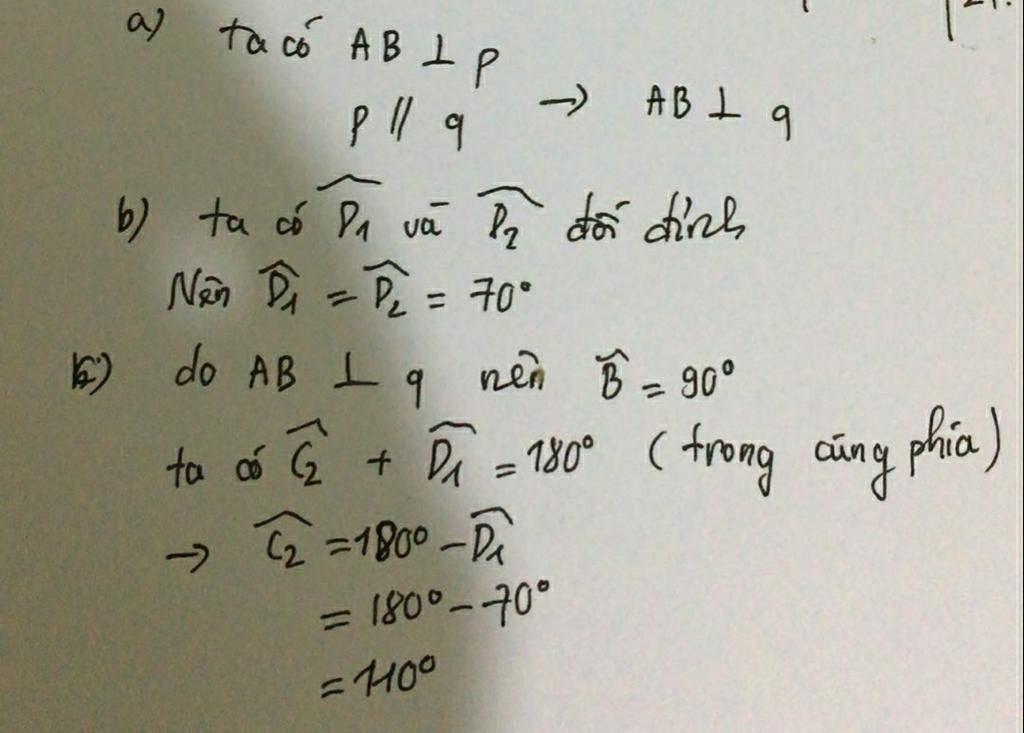 a) ta có AB ⊥ p
p // q → AB ⊥ q
b) ta có D̂1 và D̂2 đối đỉnh
Nên D̂1 = D̂2 = 70°
c) do AB ⊥ q nên B̂ = 90°
ta có Ĉ2 + D̂1 = 180° (trong cùng phía)
→ Ĉ2 = 180° - D̂1
= 180° - 70°
= 110°